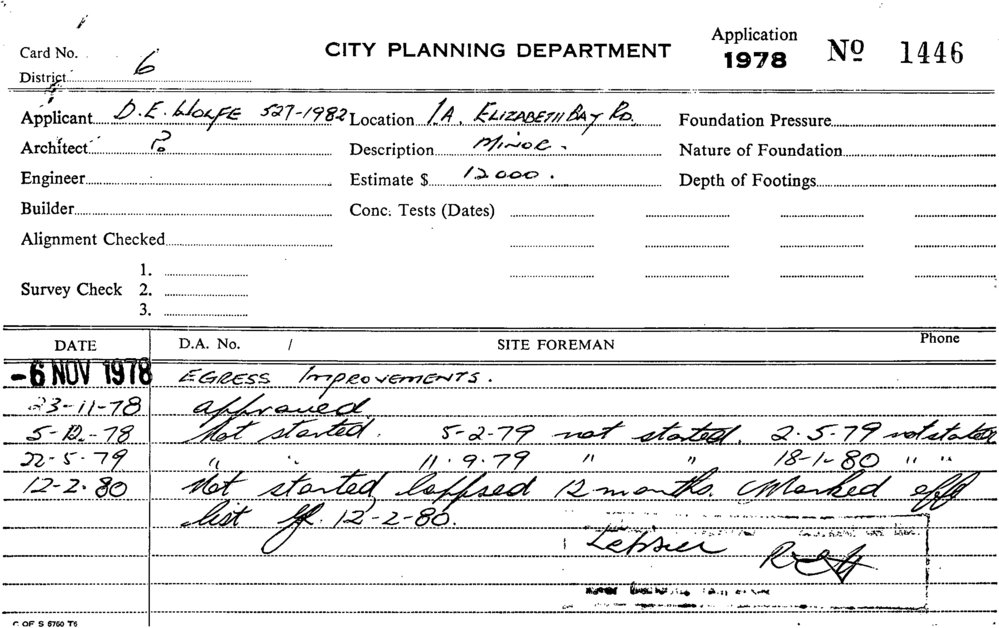 Card No. CITY PLANNING DEPARTMENT Application 1978 Nº 1446
District 6
Applicant D.E. WOLFE 527-1982 Location 1A. ELIZABETH BAY RD. Foundation Pressure
Architect ? Description MINOR. Nature of Foundation
Engineer Estimate $ 12000. Depth of Footings
Builder Conc. Tests (Dates)
Alignment Checked
1.
Survey Check 2.
3.
DATE D.A. No. / SITE FOREMAN Phone
-6 NOV 1978 EGRESS IMPROVEMENTS.
23-11-78 approved
5-12-78 Not started. 5-2-79 not started. 2.5.79 not started
22-5-79 " " 11.9.79 " " 18-1-80 " "
12-2-80 Not started, lappsed 12 months. Marked off
list 12-2-80.
C OF S 5760 T6